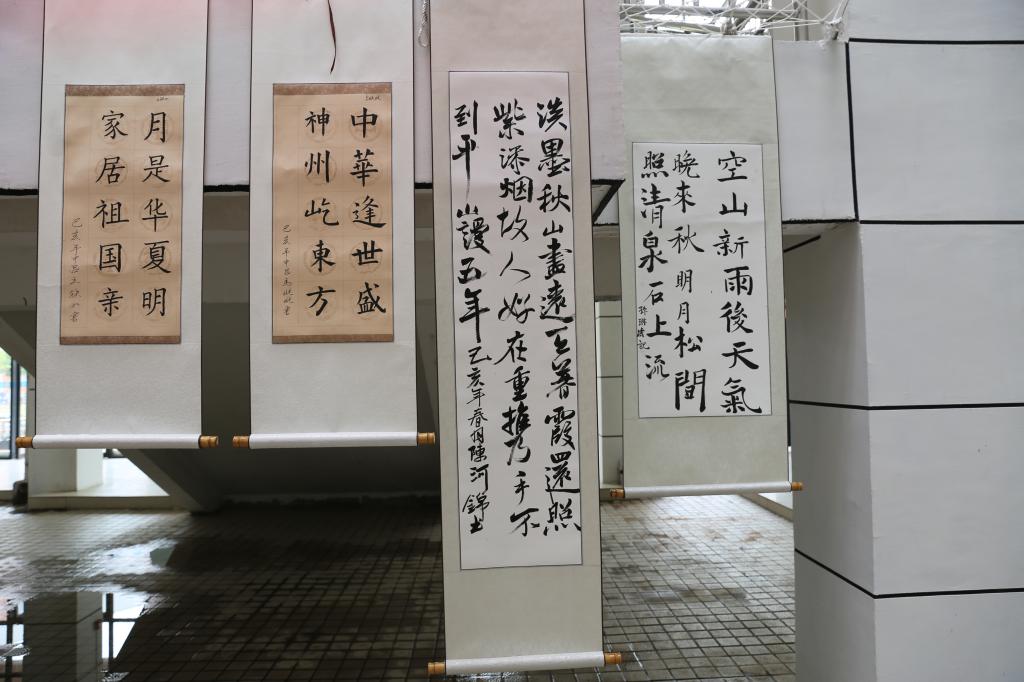 月是华夏明
家居祖国亲
己亥年中吕王
中華逢世盛
神州屹東方
己亥年中吕
淡墨秋山畫遠天暮霞還照
紫添烟故人好在重攜手不
到平山謾五年
己亥年春月陳河錦书
空山新雨後天氣
晚來秋明月松間
照清泉石上流